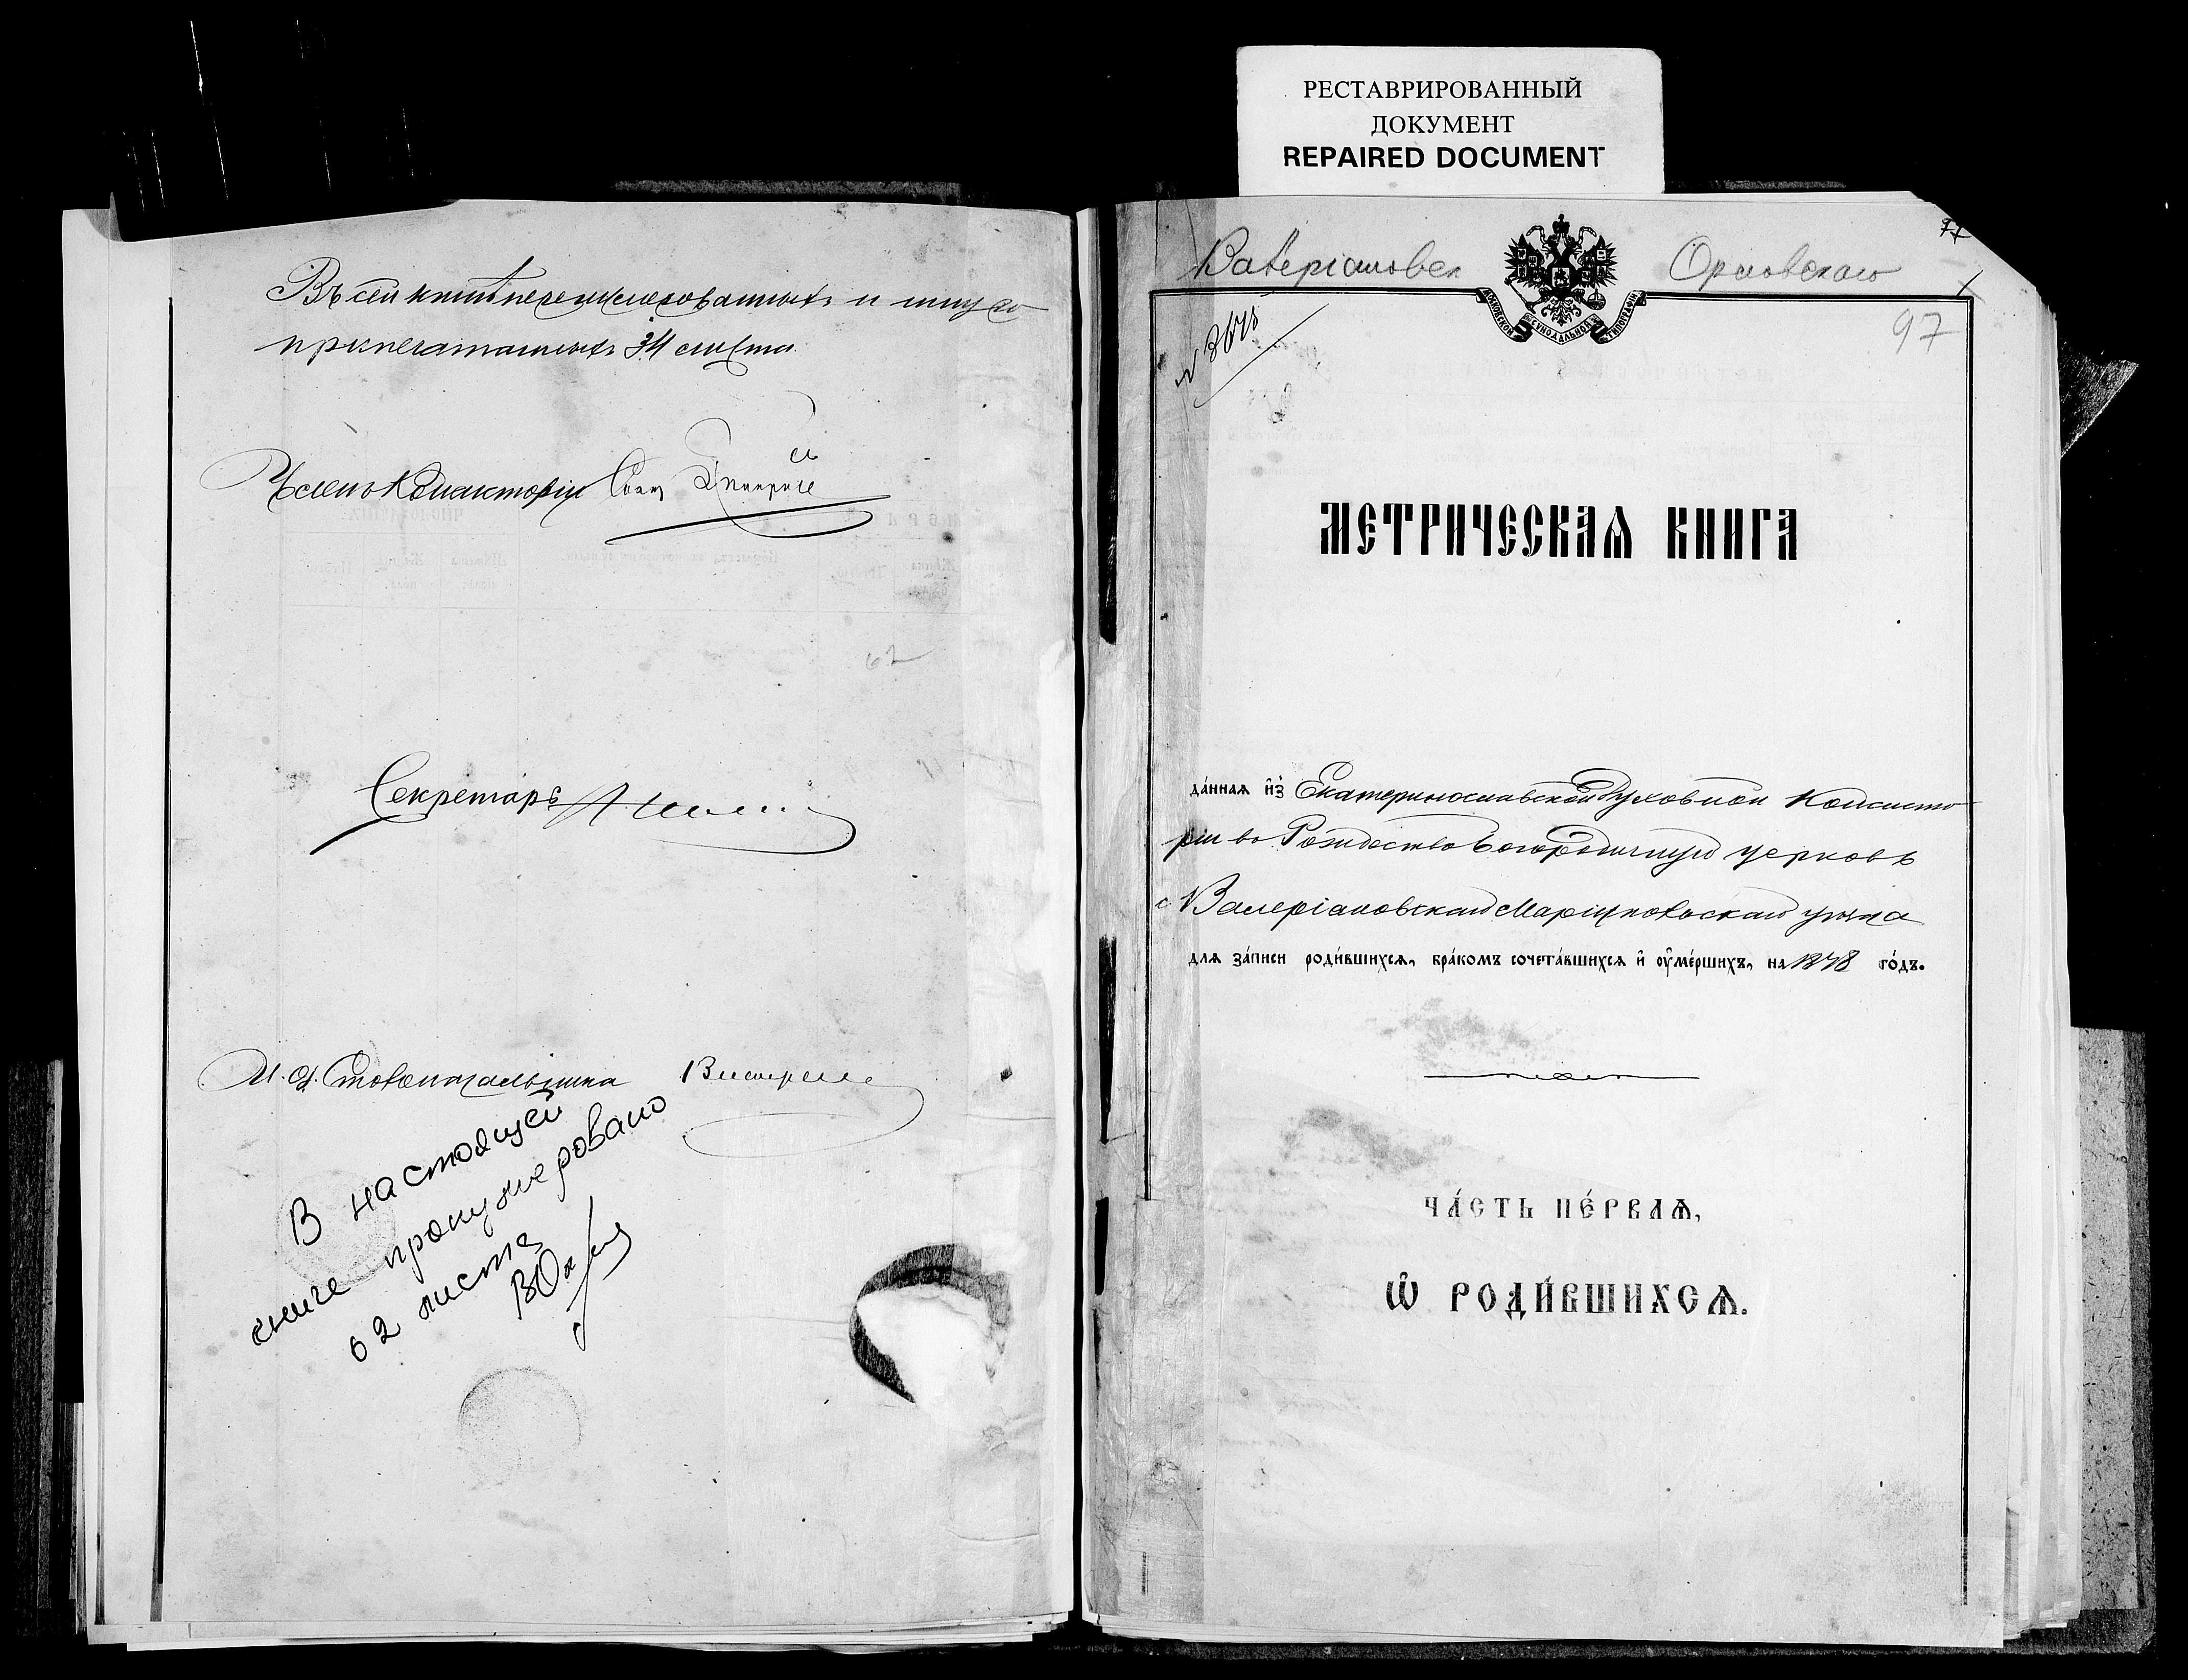 РЕСТАВРИРОВАННЫЙ
ДОКУМЕНТ
REPAIRED DOCUMENT
Въ сей книгѣ перенумерованныхъ и шнуро
припечатанныхъ 34 листа.
Членъ Консисторіи
Секретарь
И. д. Столоначальника
В настоящей
книге пронумеровано
62 листа
62
Валеріановск Орловскаго
97
МОСКОВСКОЙ СѴНОДАЛЬНОЙ ТИПОГРАФІИ
№ 3648
МЕТРИЧЕСКАѦ КНИГА
да́ннаѧ и҆з̾ Екатеринославской Духовной Консисто
ріи во Рождество Богородичную церковь
с Валеріановскаго Маріупольскаго уѣзда
длѧ за́писи роди́вшихсѧ, бра́комъ сочета́вшихсѧ и҆ ᲂу҆ме́ршихъ, на 1878 го́дъ.
ЧА́СТЬ ПЕ́РВАѦ,
Ѡ҆ РОДИ́ВШИХСѦ.